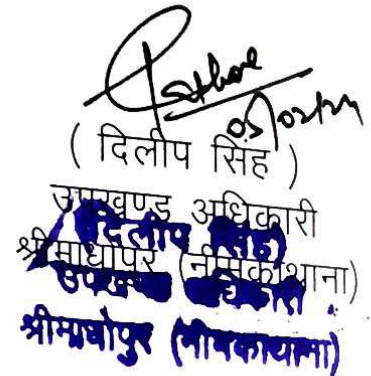 05/02/24
( दिलीप सिंह )
उपखण्ड अधिकारी
श्रीमाधोपुर (नीमकाथाना)
(दिलीप सिंह)
उपखण्ड अधिकारी
श्रीमाधोपुर (नीमकाथाना)